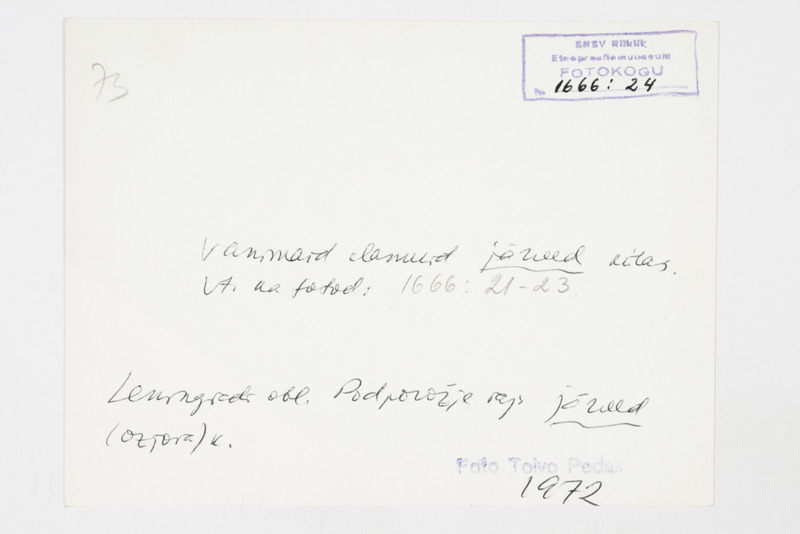 73
ENSV Riiklik
Etnograafiamuuseum
FOTOKOGU
1666: 24
Vanimaid elamuid järved külas.
Vt. ka fotod: 1666: 21-23.
Leningradi obl. Podporožje raj. järved
(ozjora) k.
Foto Toivo Pedak
1972